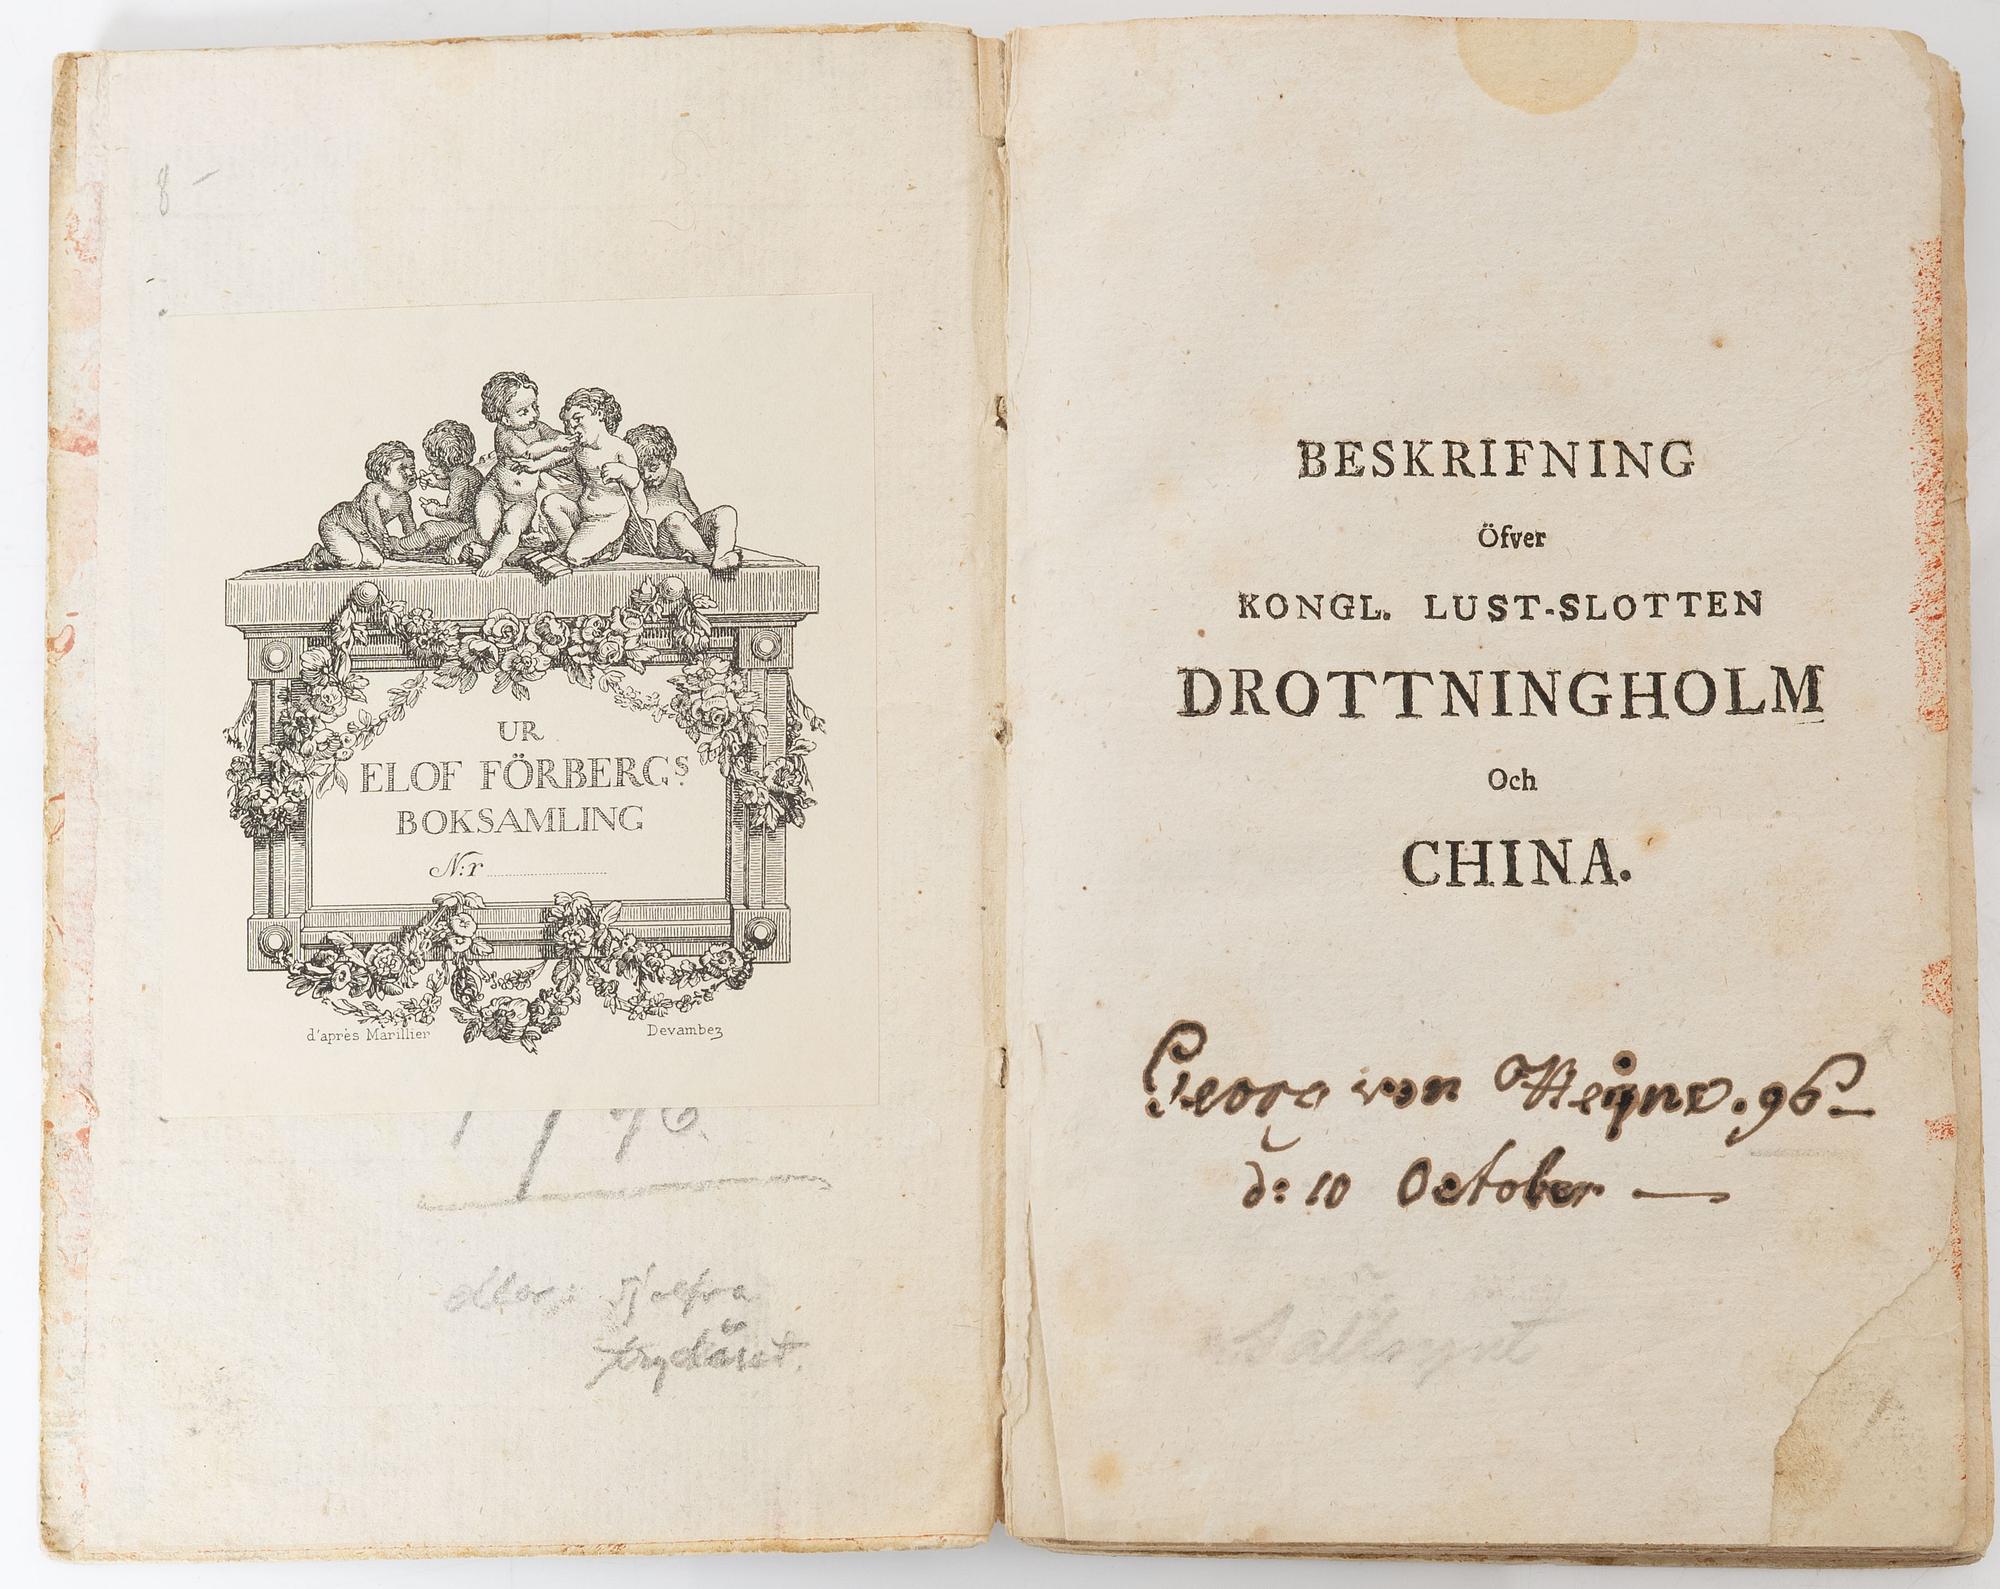 8 -
UR
ELOF FÖRBERGS
BOKSAMLING
N:r
d'après Marillier
Devambez
BESKRIFNING
Öfver
KONGL. LUST-SLOTTEN
DROTTNINGHOLM
Och
CHINA.
Georg von 96-
d: 10 October —